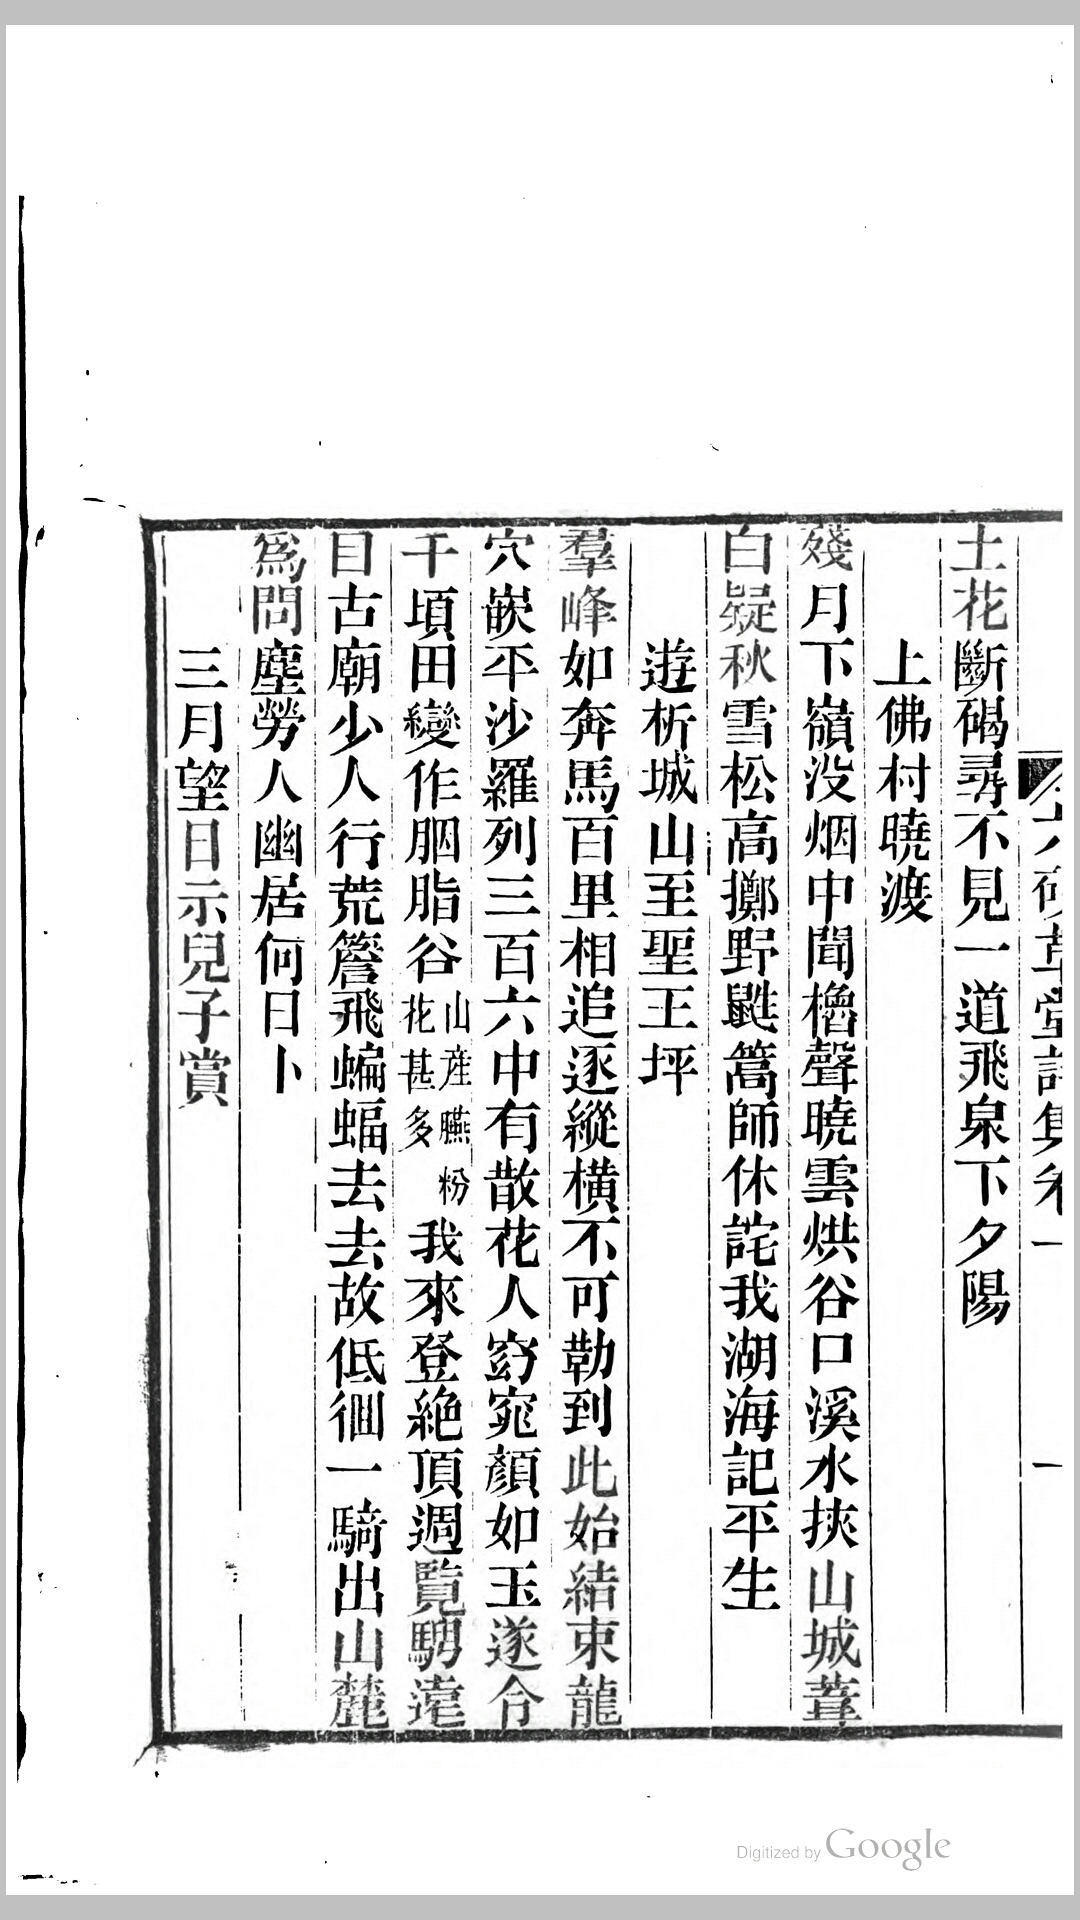 六硯草堂詩集卷一
一
土花斷碣尋不見一道飛泉下夕陽
上佛村曉渡
殘月下嶺沒烟中聞櫓聲曉雲烘谷口溪水挾山城葦
白疑秋雪松高擲野鼪篙師休詫我湖海記平生
遊析城山至聖王坪
羣峰如奔馬百里相追逐縱橫不可勒到此始結束龍
穴嵌平沙羅列三百六中有散花人窈窕顏如玉遂令
千頃田變作胭脂谷山產臙粉花甚多我來登絶頂週覽騁遠
目古廟少人行荒簷飛蝙蝠去去故低徊一騎出山麓
爲問塵勞人幽居何日卜
三月望日示兒子賞
Digitized by Google